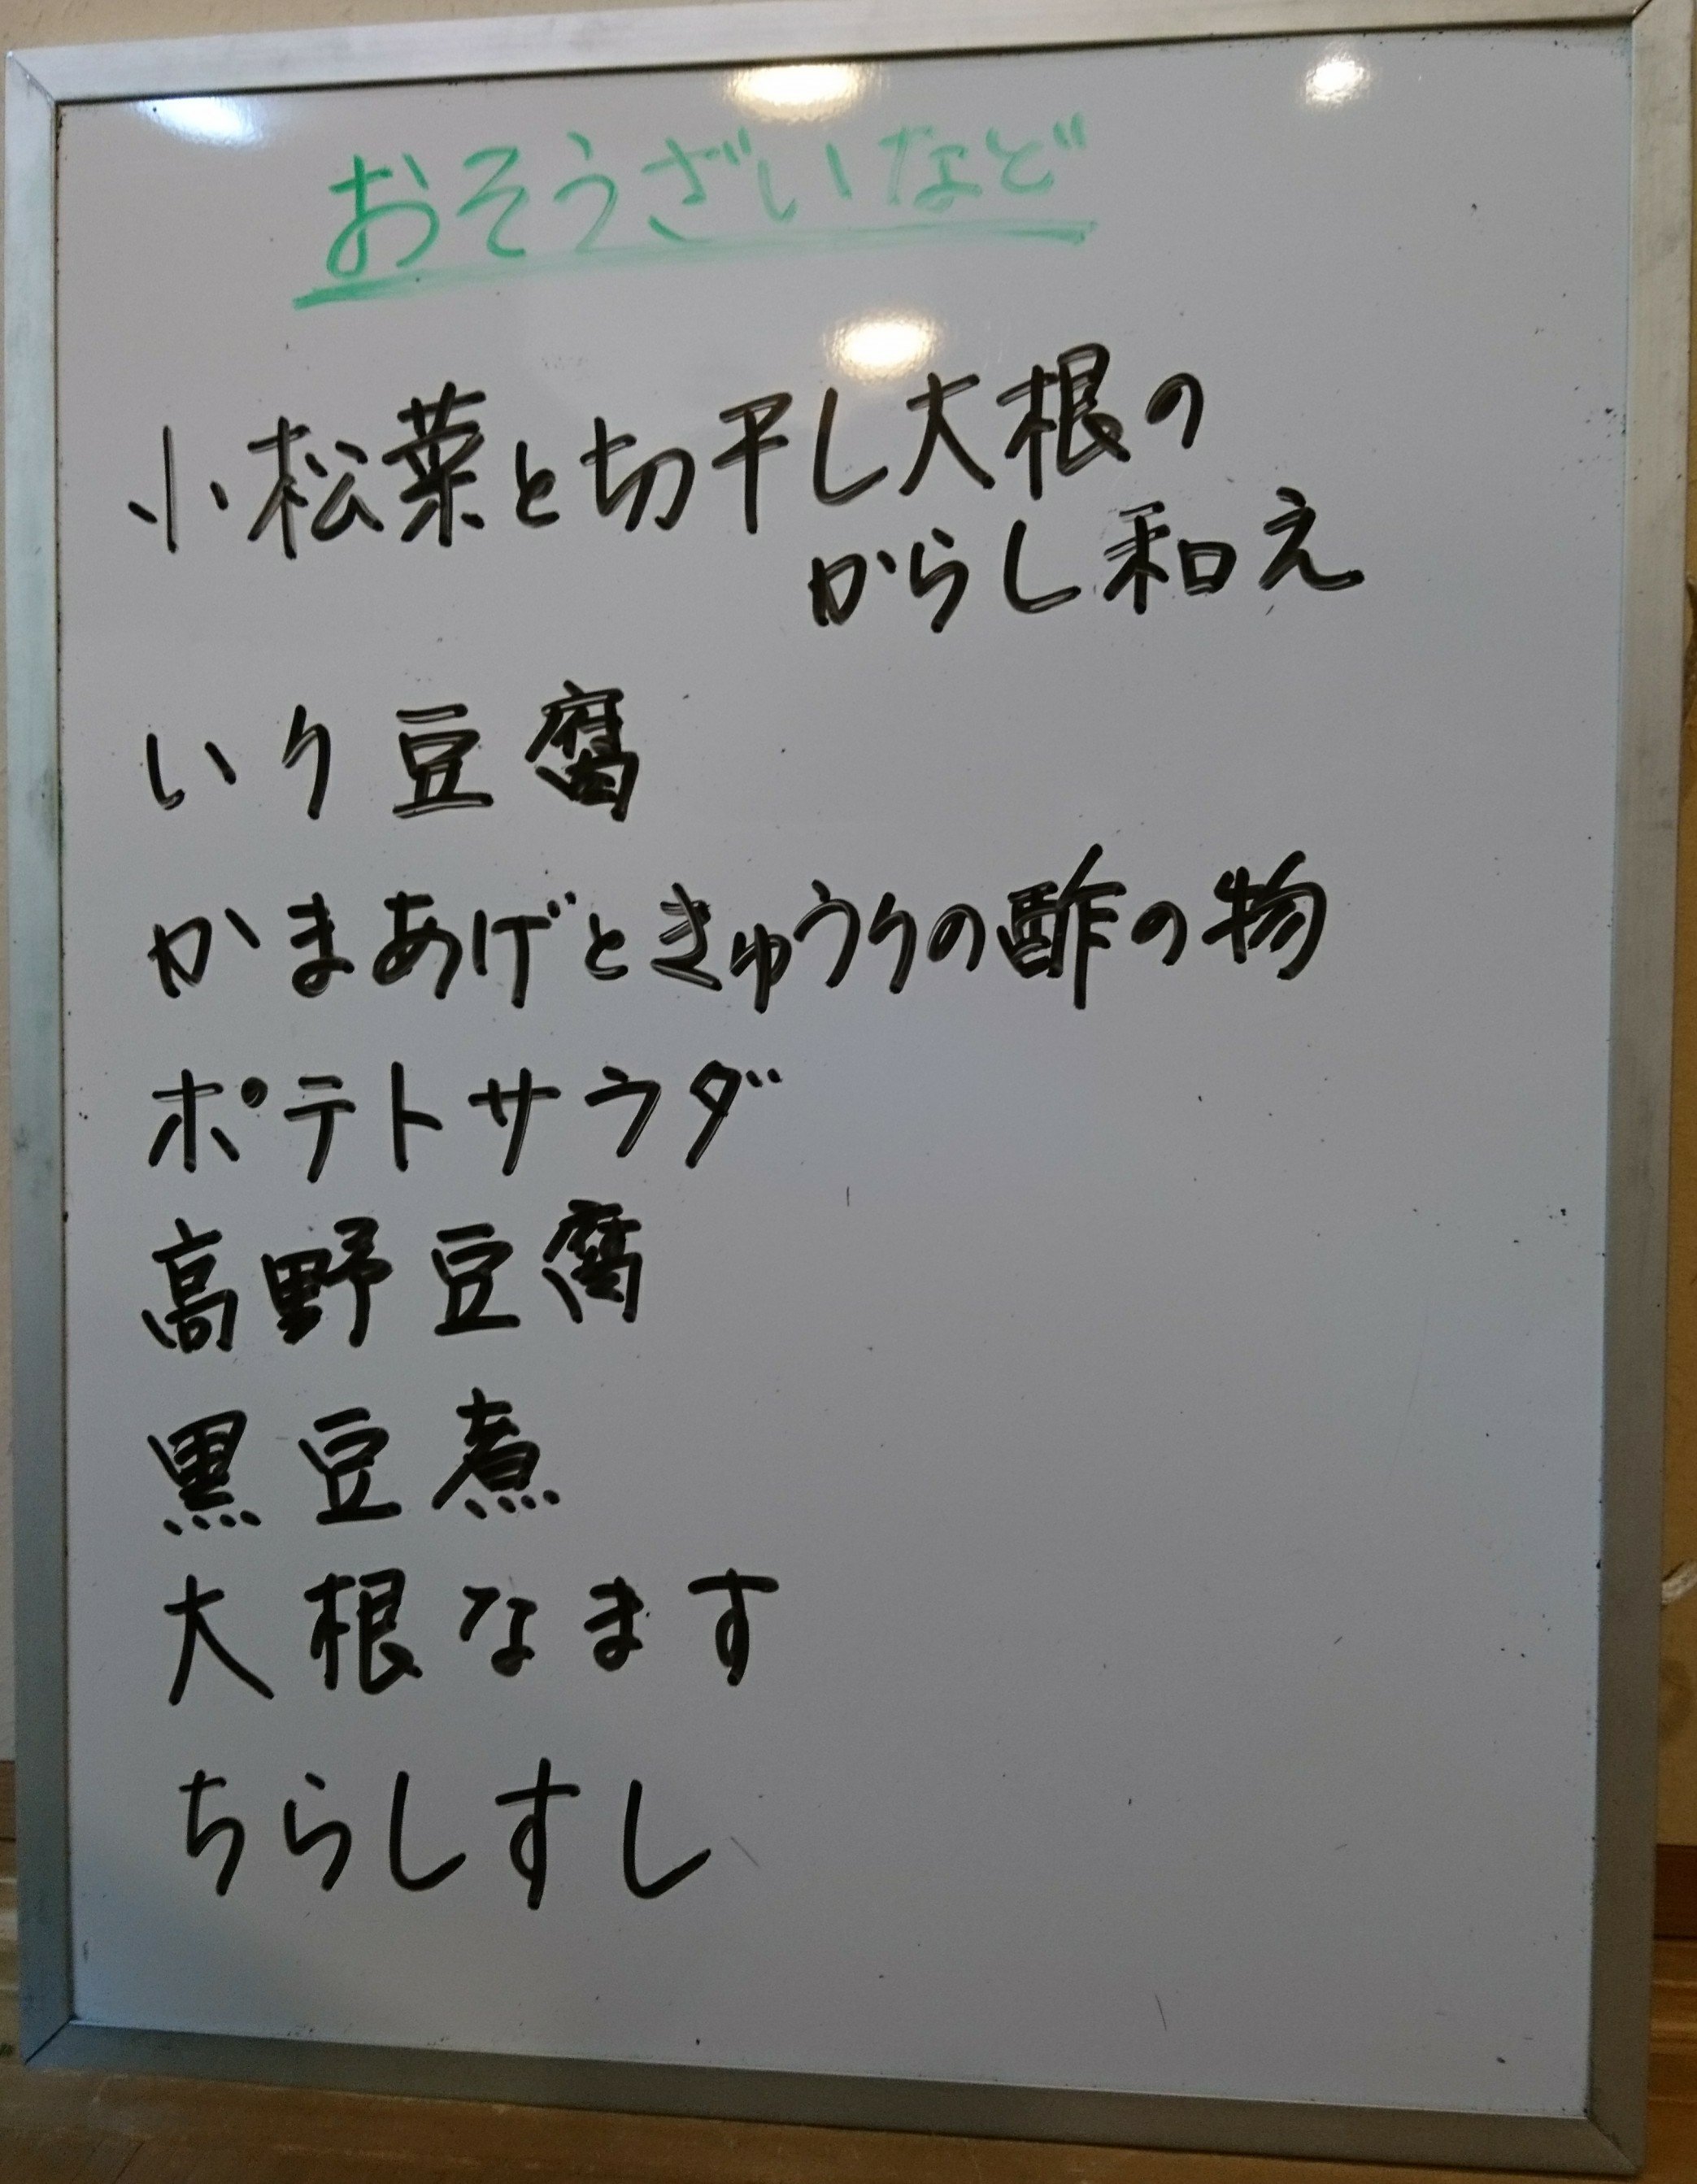 おそうざいなど
小松菜と切干し大根の
からし和え
いり豆腐
かまあげときゅうりの酢の物
ポテトサラダ
高野豆腐
黒豆煮
大根なます
ちらしすし